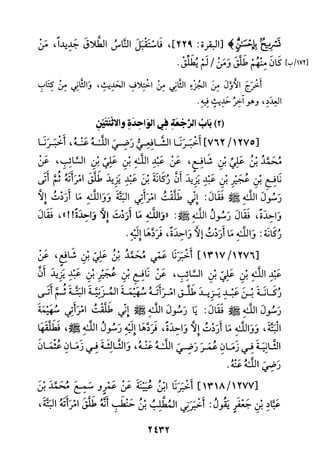 تَسْرِيحٌ بِإِحْسَٰنٍ﴾ [البقرة: ٢٢٩]، فَاسْتَقْبَلَ النَّاسُ الطَّلاقَ جَدِيداً، مَنْ
كَانَ مِنْهُمْ طَلَّقَ وَمَنْ / لَمْ يُطَلِّقْ.
[١٧٢/ب]
أَخْرَجَ الأَوَّلَ مِنَ الجُزْءِ الثاني مِنِ اخْتِلافِ الحَدِيثِ، والثَّانِيَ مِنْ كِتَابِ
العِدَدِ، وهو آخِرُ حدِيثٍ فِيهِ.
(٢) بَابُ الرَّجْعَةِ فِي الوَاحِدَةِ والاثْنَتَيْنِ
[٧٦٢/١٢٧٥] أَخْبَرَنَا الشَّافِعِيُّ رَضِيَ اللَّهُ عَنْهُ، أَخْبَرَنَا
مُحَمَّدُ بْنُ عَلِيِّ بْنِ شَافِعٍ، عَنْ عَبْدِ اللَّهِ بْنِ عَلِيِّ بْنِ السَّائِبِ، عَنْ
نَافِعِ بْنِ عُجَيْرِ بْنِ عَبْدِ يَزِيدَ أَنَّ رُكَانَةَ بْنَ عَبْدِ يَزِيدَ طَلَّقَ امْرَأَتَهُ ثُمَّ أَتَى
رَسُولَ اللَّهِ ﷺ فَقَالَ: إِنِّي طَلَّقْتُ امْرَأَتِي البَتَّةَ وَاللَّهِ مَا أَرَدْتُ إِلاَّ
وَاحِدَةً، فَقَالَ رَسُولُ اللَّهِ ﷺ: «وَاللَّهِ مَا أَرَدْتَ إِلاَّ وَاحِدَةً؟!»، فَقَالَ
رُكَانَةُ: وَاللَّهِ مَا أَرَدْتُ إِلاَّ وَاحِدَةً، فَرَدَّهَا إِلَيْهِ.
[١٣١٧/١٢٧٦] أَخْبَرَنَا عَمِّي مُحَمَّدُ بْنُ عَلِيِّ بْنِ شَافِعٍ، عَنْ
عَبْدِ اللَّهِ بْنِ عَلِيِّ بْنِ السَّائِبِ، عَنْ نَافِعِ بْنِ عُجَيْرِ بْنِ عَبْدِ يَزِيدَ أَنَّ
رُكَانَةَ بْنَ عَبْدِ يَزِيدَ طَلَّقَ امْرَأَتَهُ سُهَيْمَةَ المُزَنِيَّةَ البَتَّةَ ثُمَّ أَتَى
رَسُولَ اللَّهِ ﷺ فَقَالَ: يَا رَسُولَ اللَّهِ ﷺ إِنِّي طَلَّقْتُ امْرَأَتِي سُهَيْمَةَ
البَتَّةَ، وَوَاللَّهِ مَا أَرَدْتُ إِلاَّ وَاحِدَةً، فَرَدَّهَا إِلَيْهِ رَسُولُ اللَّهِ ﷺ، فَطَلَّقَهَا
الثَّانِيَةَ فِي زَمَانِ عُمَرَ رَضِيَ اللَّهُ عَنْهُ، وَالثَّالِثَةَ فِي زَمَانِ عُثْمَانَ
رَضِيَ اللَّهُ عَنْهُ.
[١٣١٨/١٢٧٧] أَخْبَرَنَا ابْنُ عُيَيْنَةَ عَنْ عَمْرٍو سَمِعَ مُحَمَّدَ بْنَ
عَبَّادِ بْنِ جَعْفَرٍ يَقُولُ: أَخْبَرَنِي المُطَّلِبُ بْنُ حَنْطَبٍ أَنَّهُ طَلَّقَ امْرَأَتَهُ البَتَّةَ،
٢٤٣٢